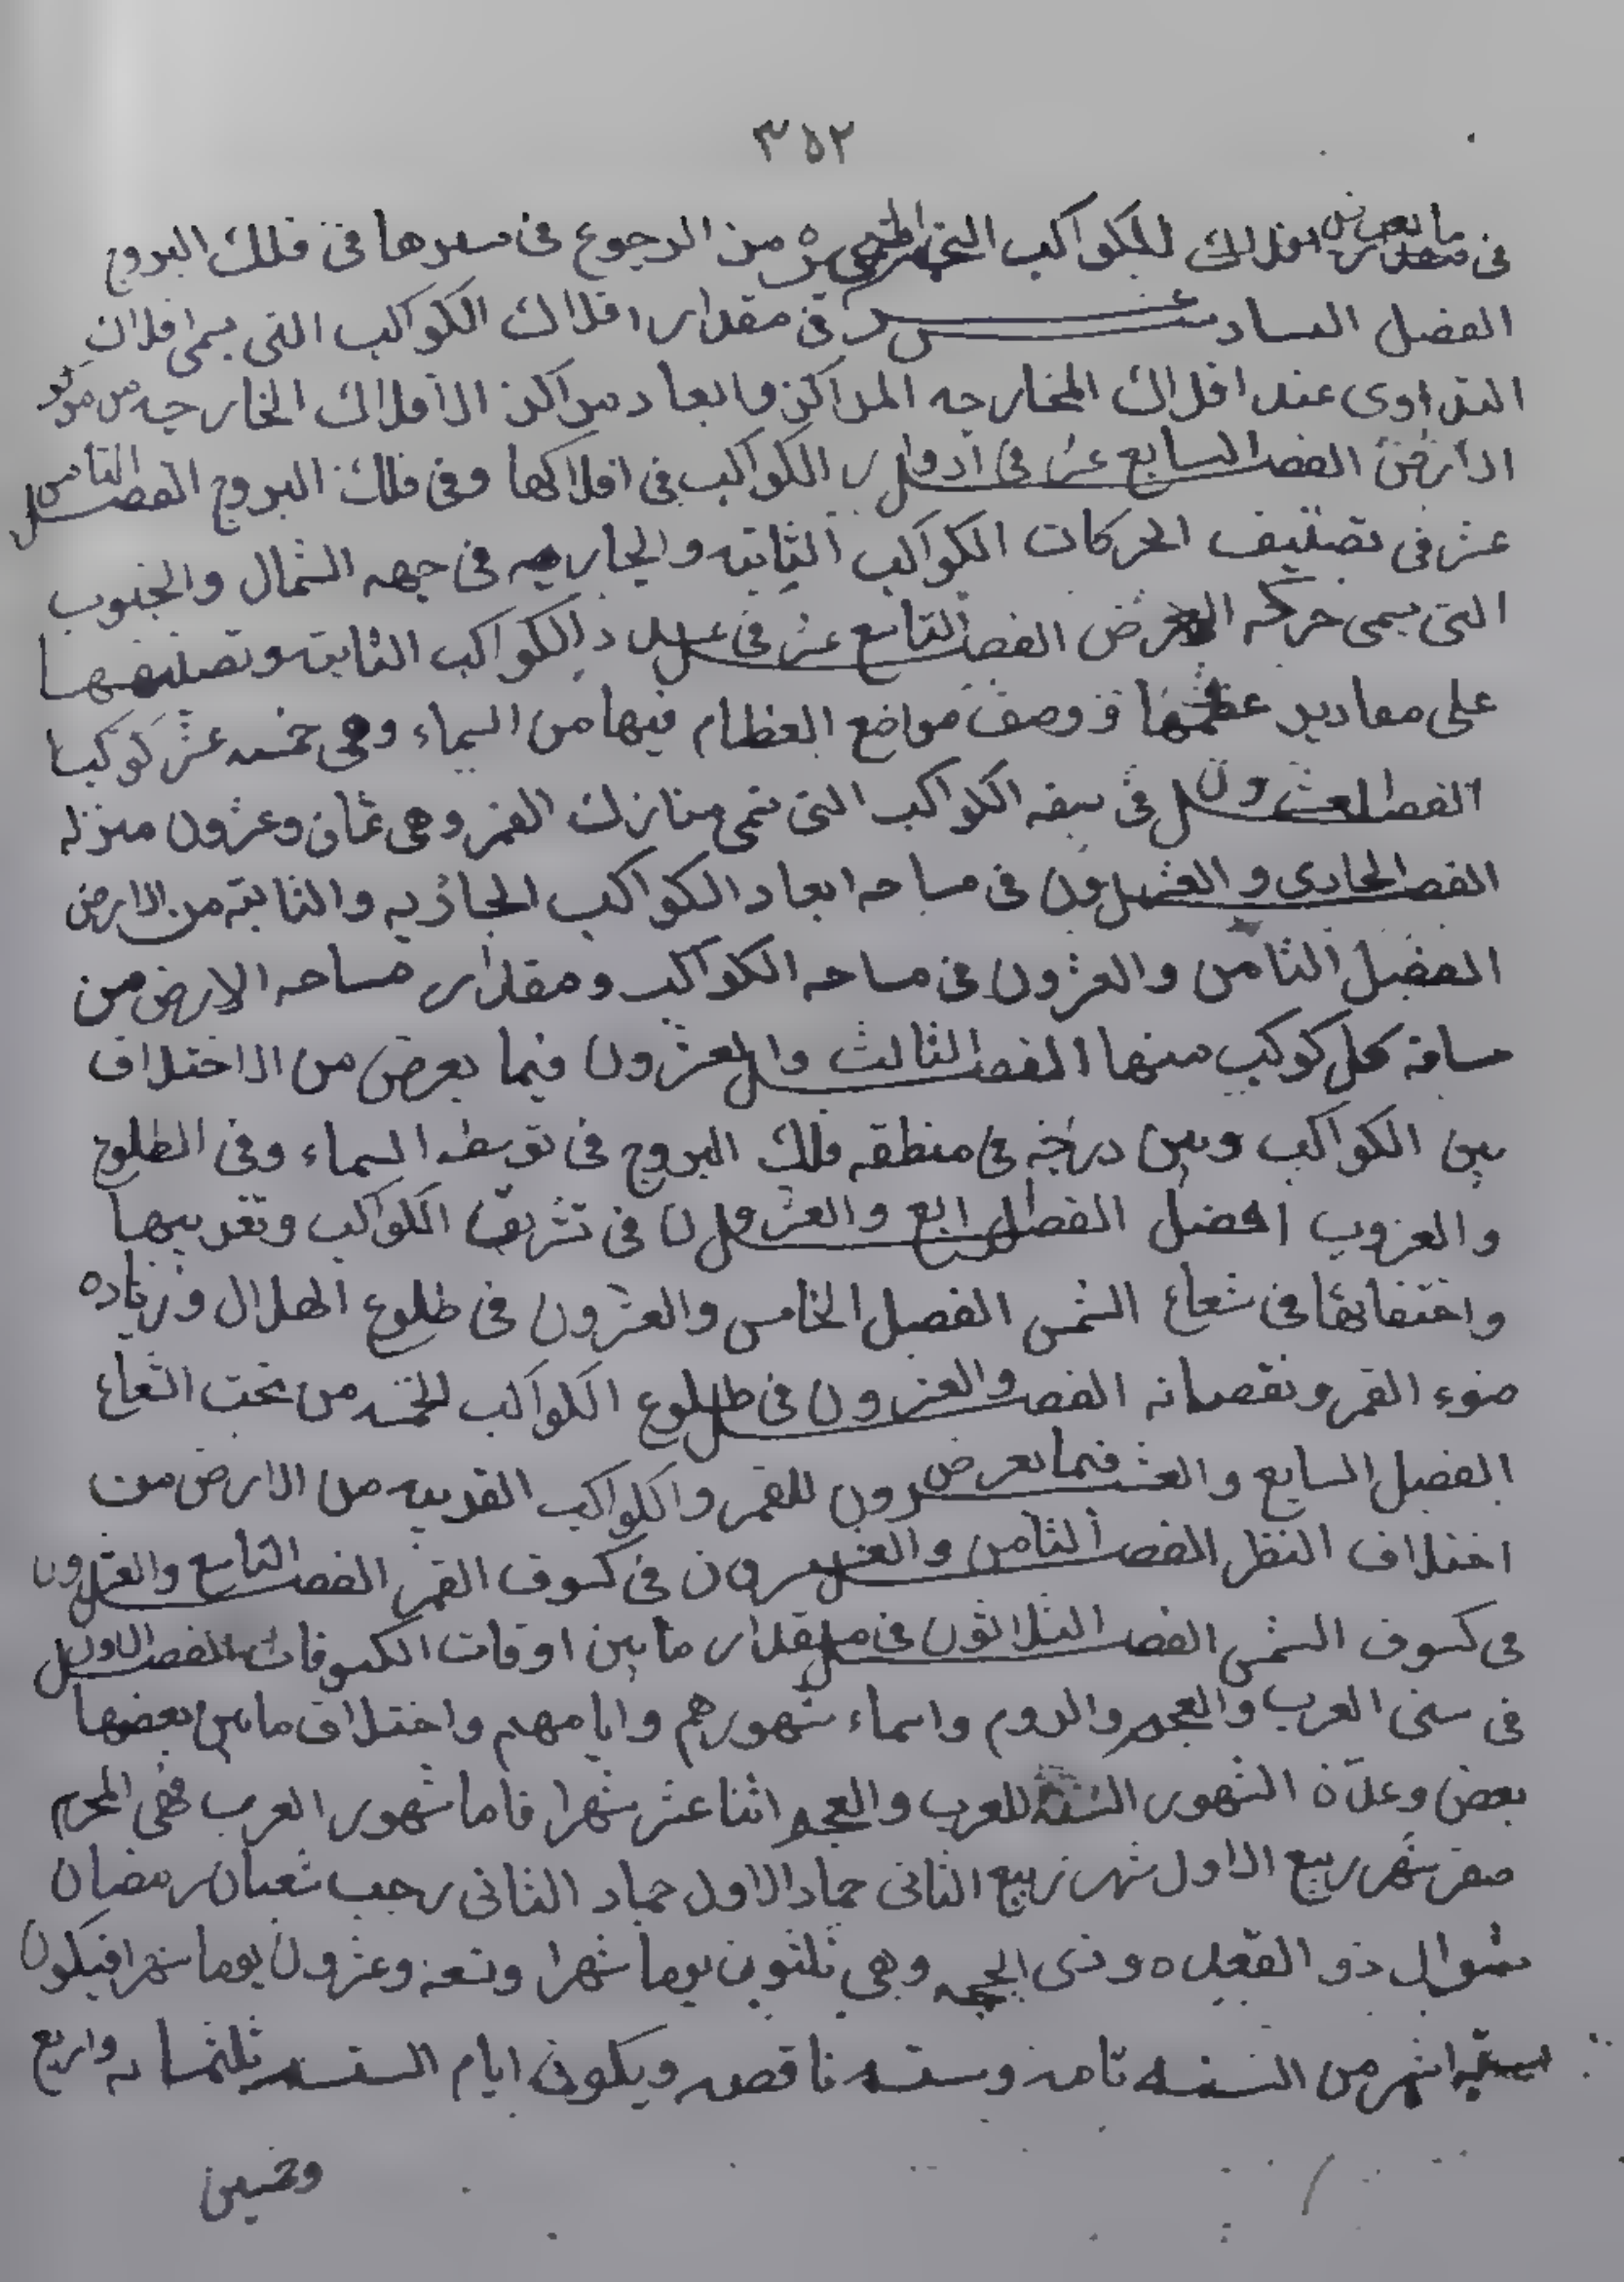 ٣٥٢
فى ما يعرض افلاك للكواكب المتحيره من الرجوع فى مسيرها فى فلك البروج
الفصل السادس عشر فى مقدار افلاك الكواكب التى يسمى افلاك
التداوى عند افلاك الخارجه المراكز وابعاد مراكز الافلاك الخارجه من مركز
الارض الفصل السابع عشر فى ادوار الكواكب فى افلاكها وفى فلك البروج الفصل الثامن
عشر فى تصنيف الحركات الكواكب الثابته والجاريه فى جهه الشمال والجنوب
التى يسمى حركه العرض الفصل التاسع عشر فى عدد الكواكب الثابته وتصنيفها
على مقادير عظمها و وصف مواضع العظام فيها من السماء وهى خمسه عشر كوكبا
الفصل العشرون فى سقه الكواكب التى تسمى منازل القمر وهى ثمان وعشرون منزله
الفصل الحادى والعشرون فى مساحه ابعاد الكواكب الجاريه والثابته من الارض
الفضل الثامن والعشرون فى مساحه الكواكب ومقدار مساحه الارض من
مسافة كل كوكب منها الفصل الثالث والعشرون فيما يعرض من الاختلاف
بين الكواكب وبين دراجه فى منطقه فلك البروج فى توسط السماء وفى الطلوع
والغروب افضل الفصل الرابع والعشرون فى تشريق الكواكب وتغريبها
واختفائها فى شعاع الشمس الفصل الخامس والعشرون فى طلوع الهلال وزياده
ضوء القمر ونقصانه الفصل والعشرون فى طلوع الكواكب الخمسه من تحت الشعاع
الفصل السابع والعشرون فيما يعرض للقمر والكواكب القريبه من الارض من
اختلاف النظر الفصل الثامن والعشرون فى كسوف القمر الفصل التاسع والعشرون
فى كسوف الشمس الفصل الثلاثون فى مقدار ما بين اوقات الكسوفات الفصل الاول
فى سنى العرب والعجم والروم واسماء شهورهم وايامهم واختلاف مابين بعضها
بعض وعدّة الشهور السنة للعرب والعجم اثنا عشر شهرا فاما شهور العرب فهى المحرم
صفر شهر ربيع الاول شهر ربيع الثانى جماد الاول جماد الثانى رجب شعبان رمضان
شوال ذو القعده وذى الحجه وهى ثلثون يوما شهرا وتسعة وعشرون يوما شهرا فيكون
سته اشهر من السنه تامه وسته ناقصه ويكون ايام السنه ثلثمائه واربع
وخمسين